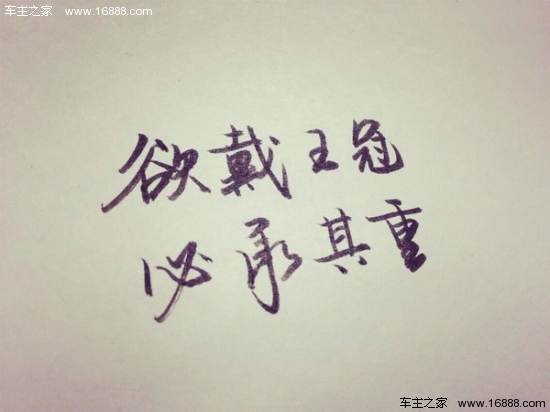 车主之家 www.16888.com
欲戴王冠
必承其重
车主之家 www.16888.com